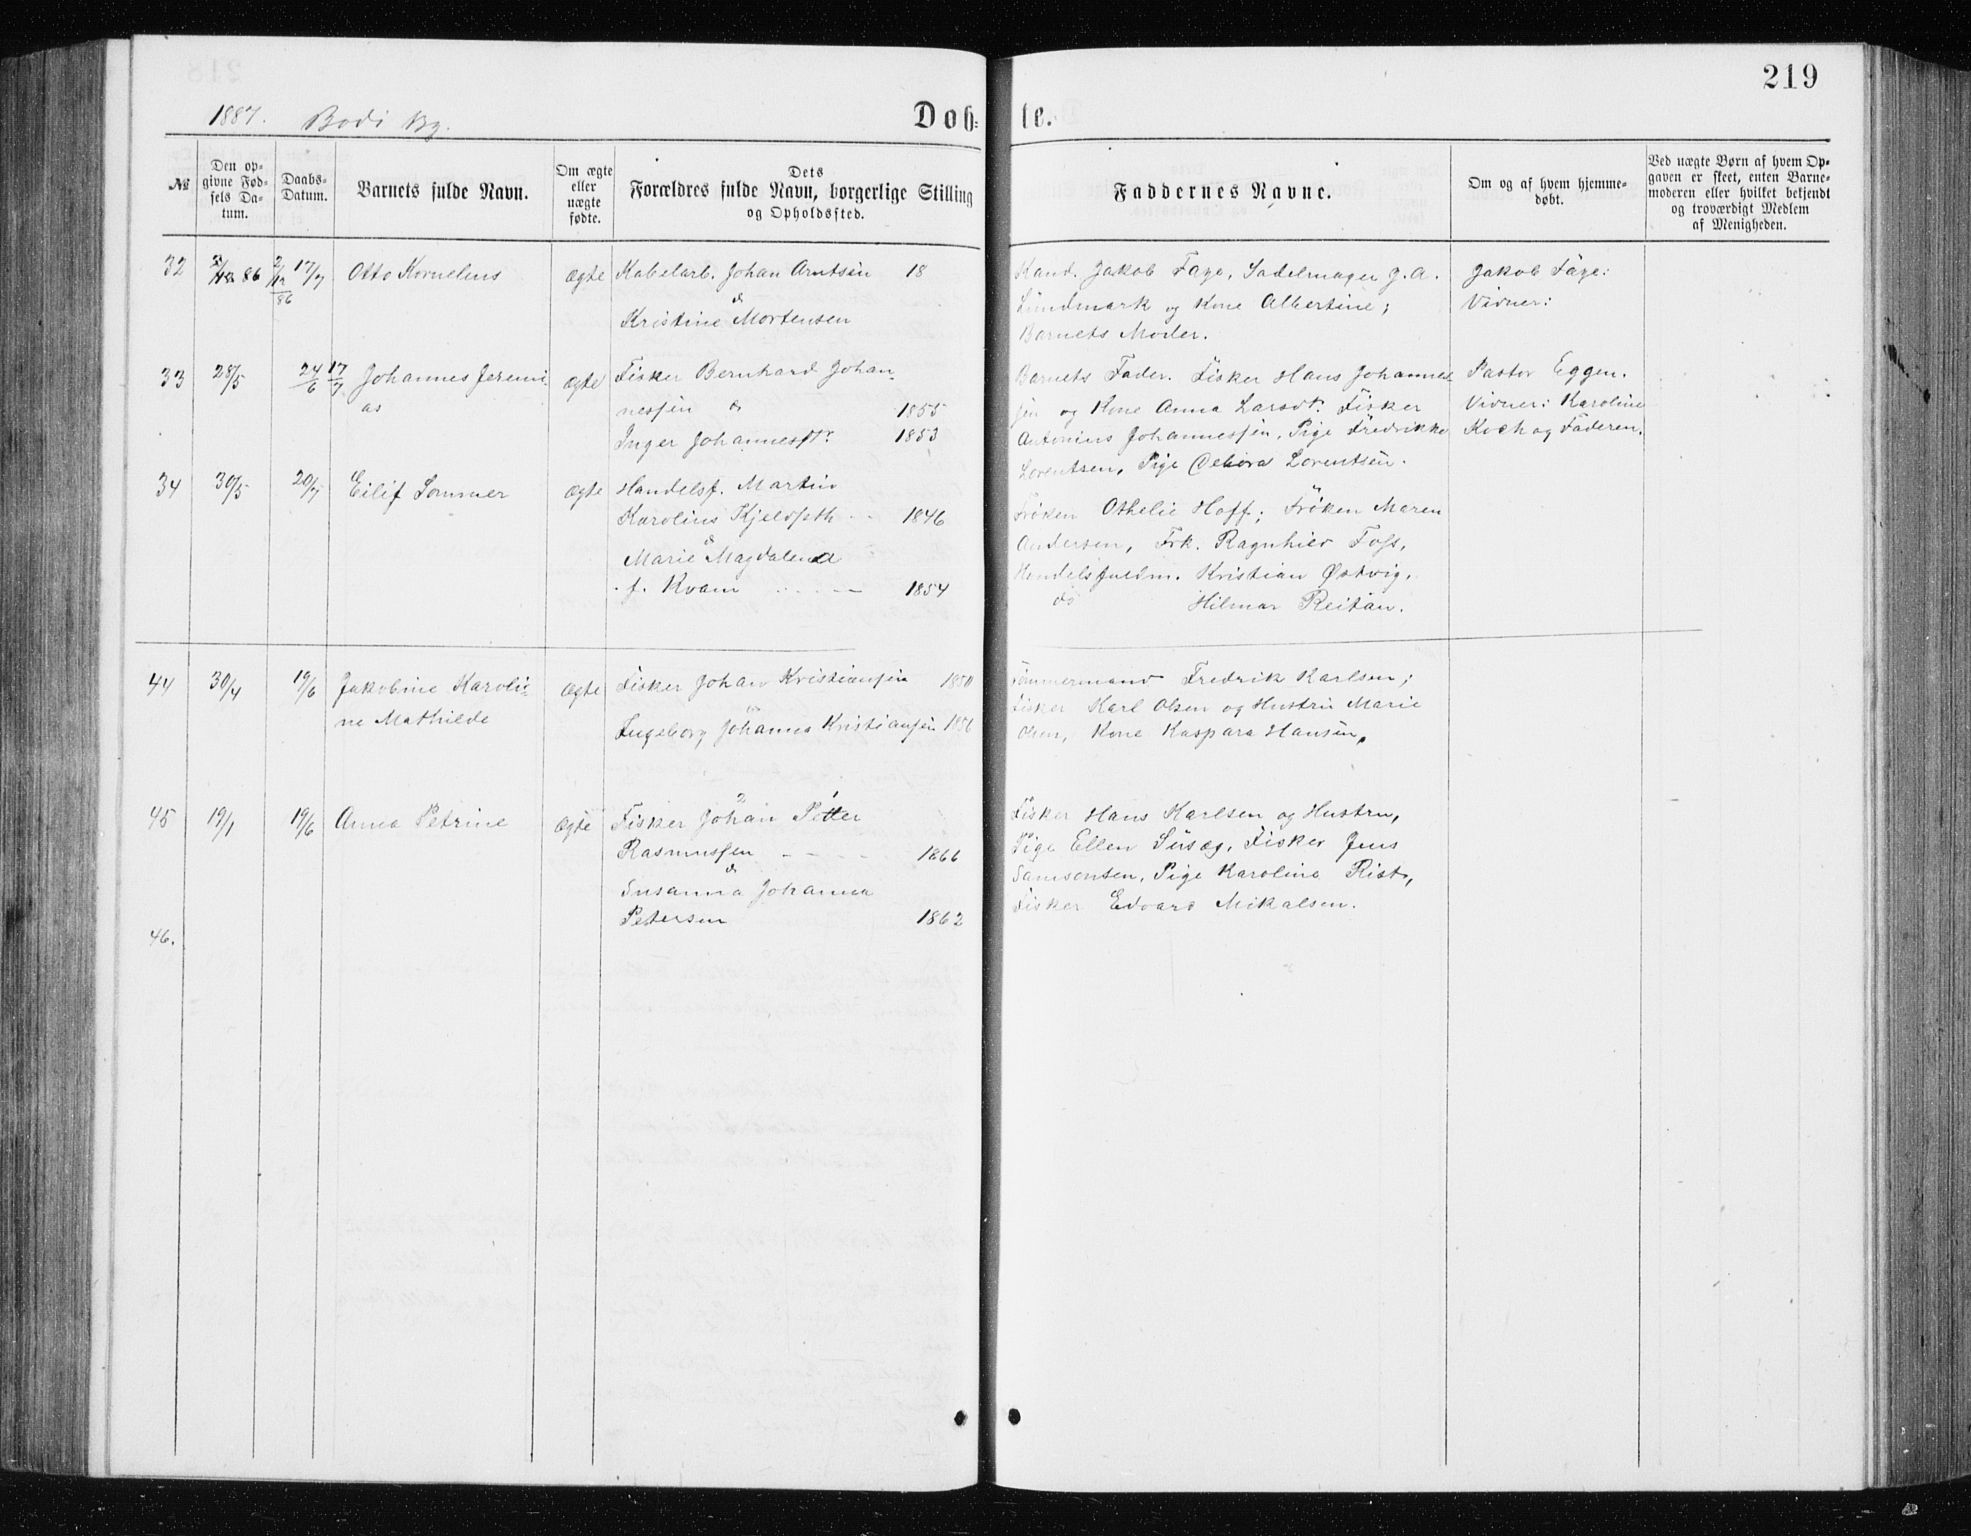 219
1887. Bodö By.
Døb- te.
№
Den op-
givne Fød-
sels Da-
tum.
Daabs-
Datum.
Barnets fulde Navn.
Om ægte
eller
uægte
fødte.
Dets
Forældres fulde Navn, borgerlige Stilling
og Opholdssted.
Faddernes Navne.
Om og af hvem hjemme-
døbt.
Ved uægte Børn af hvem Op-
gaven er skeet, enten Barne-
moderen eller hvilket bekjendt
og troværdigt Medlem
af Menigheden.
32 86 2/12 86 17/7 Otto Kornelius ægte Kabelarb. Johan Arntsen 18
&
Kristine Mortensen
Kand. Jakob Faye, Sadelmager J. A.
Lundmark og Kone Albertine;
Barnets Moder.
Jakob Faye:
Vidner:
33 28/5 24/6 17/7 Johannes Jeremi-
as
ægte Fisker Bernhard Johan-
nessen & 1855
Inger Johannesdtr. 1853
Barnets Fader. Fisker Hans Johannes-
sen og Kone Anna Larsdt. Fisker
Antonius Johannessen, Pige Fredrikke
Lorentsen, Pige Debora Lorentsen.
Pastor Eggen.
Vidner: Karoline
Koch og Faderen.
34 30/5 20/7 Eilif Sommer ægte Handelsf. Martin
Karolius Kjeldseth 1846
&
Marie Magdalena
f. Kvam 1854
Frøken Othelie Hoff; Frøken Maren
Andersen, Frk. Ragnhild Foss,
Handelsfuldm. Kristian Østvig,
do Hilmar Reitan.
44 30/4 19/6 Jakobine Karoli-
ne Mathilde
ægte Fisker Johan Kristiansen
Ingeborg Johanna Kristiansen
Tømmermand Fredrik Karlsen;
Fisker Karl Olsen og Hustru Marie
Olsen, Kone Kaspara Hansen,
45 19/1 19/6 Anna Petrine ægte Fisker Johan Petter
Rasmussen 1866
&
Susanna Johanna
Petersen 1862
Fisker Hans Karlsen og Hustru,
Pige Ellen Susæg, Fisker Jens
Samsonsen, Pige Karoline Rist,
Fisker Edvard Mikalsen.
46.